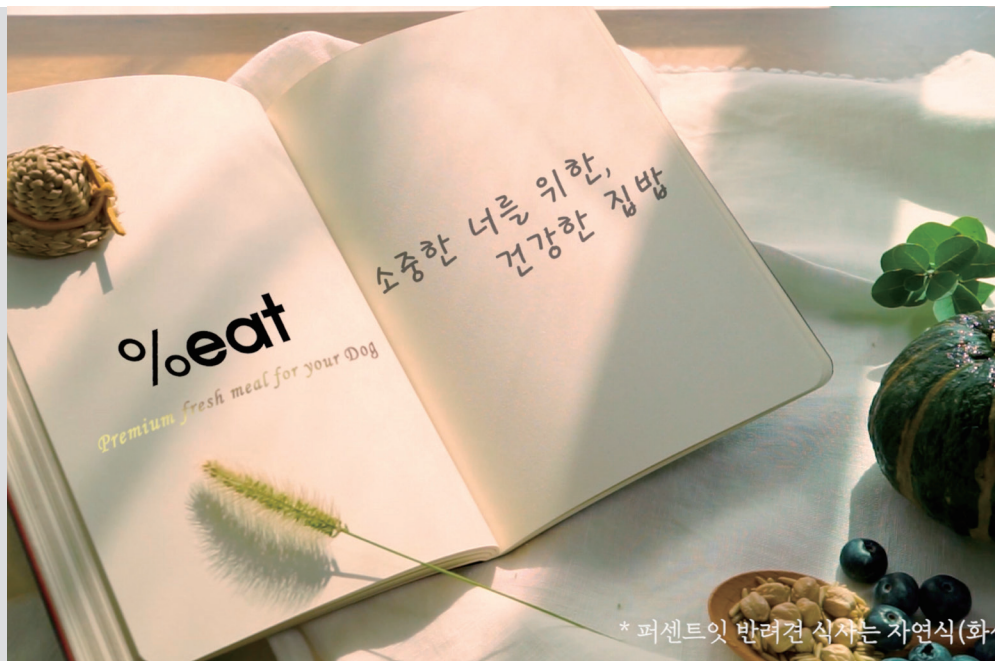 %eat
Premium fresh meal for your Dog
소중한 너를 위한,
건강한 집밥
* 퍼센트잇 반려견 식사는 자연식(화